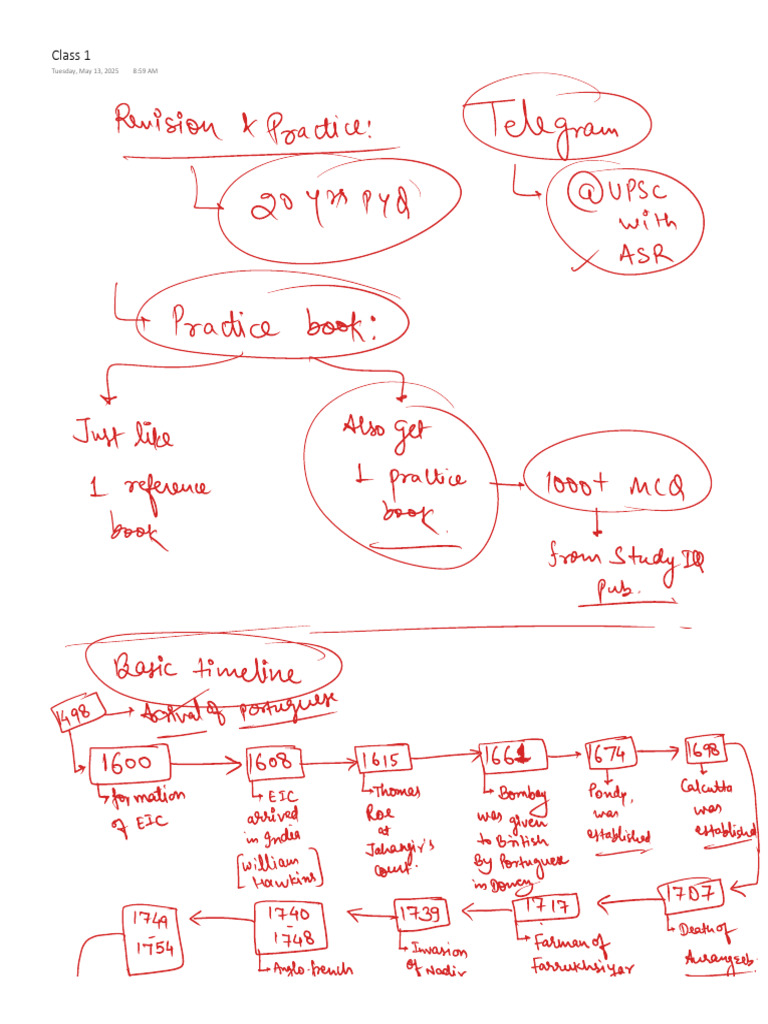 Class 1
Tuesday, May 13, 2025 8:59 AM
Revision & Practice:
20 Yrs PYQ
Telegram
@UPSC
with
ASR
Practice book:
Just like
1 reference
book
Also get
1 practice
book
1000+ MCQ
from Study IQ
Pub.
Basic timeline
1498
Arrival of Portuguese
1600
formation
of EIC
1608
EIC
arrived
in India
[William
Hawkins]
1615
Thomas
Roe
at
Jahangir's
Court.
1661
Bombay
was given
to British
By Portuguese
in Dowry
1674
Pondy.
was
established
1698
Calcutta
was
established
1707
Death of
Aurangzeb
1717
Farman of
Farrukhsiyar
1739
Invasion
of Nadir
1740
-
1748
Anglo-french
1749
-
1754